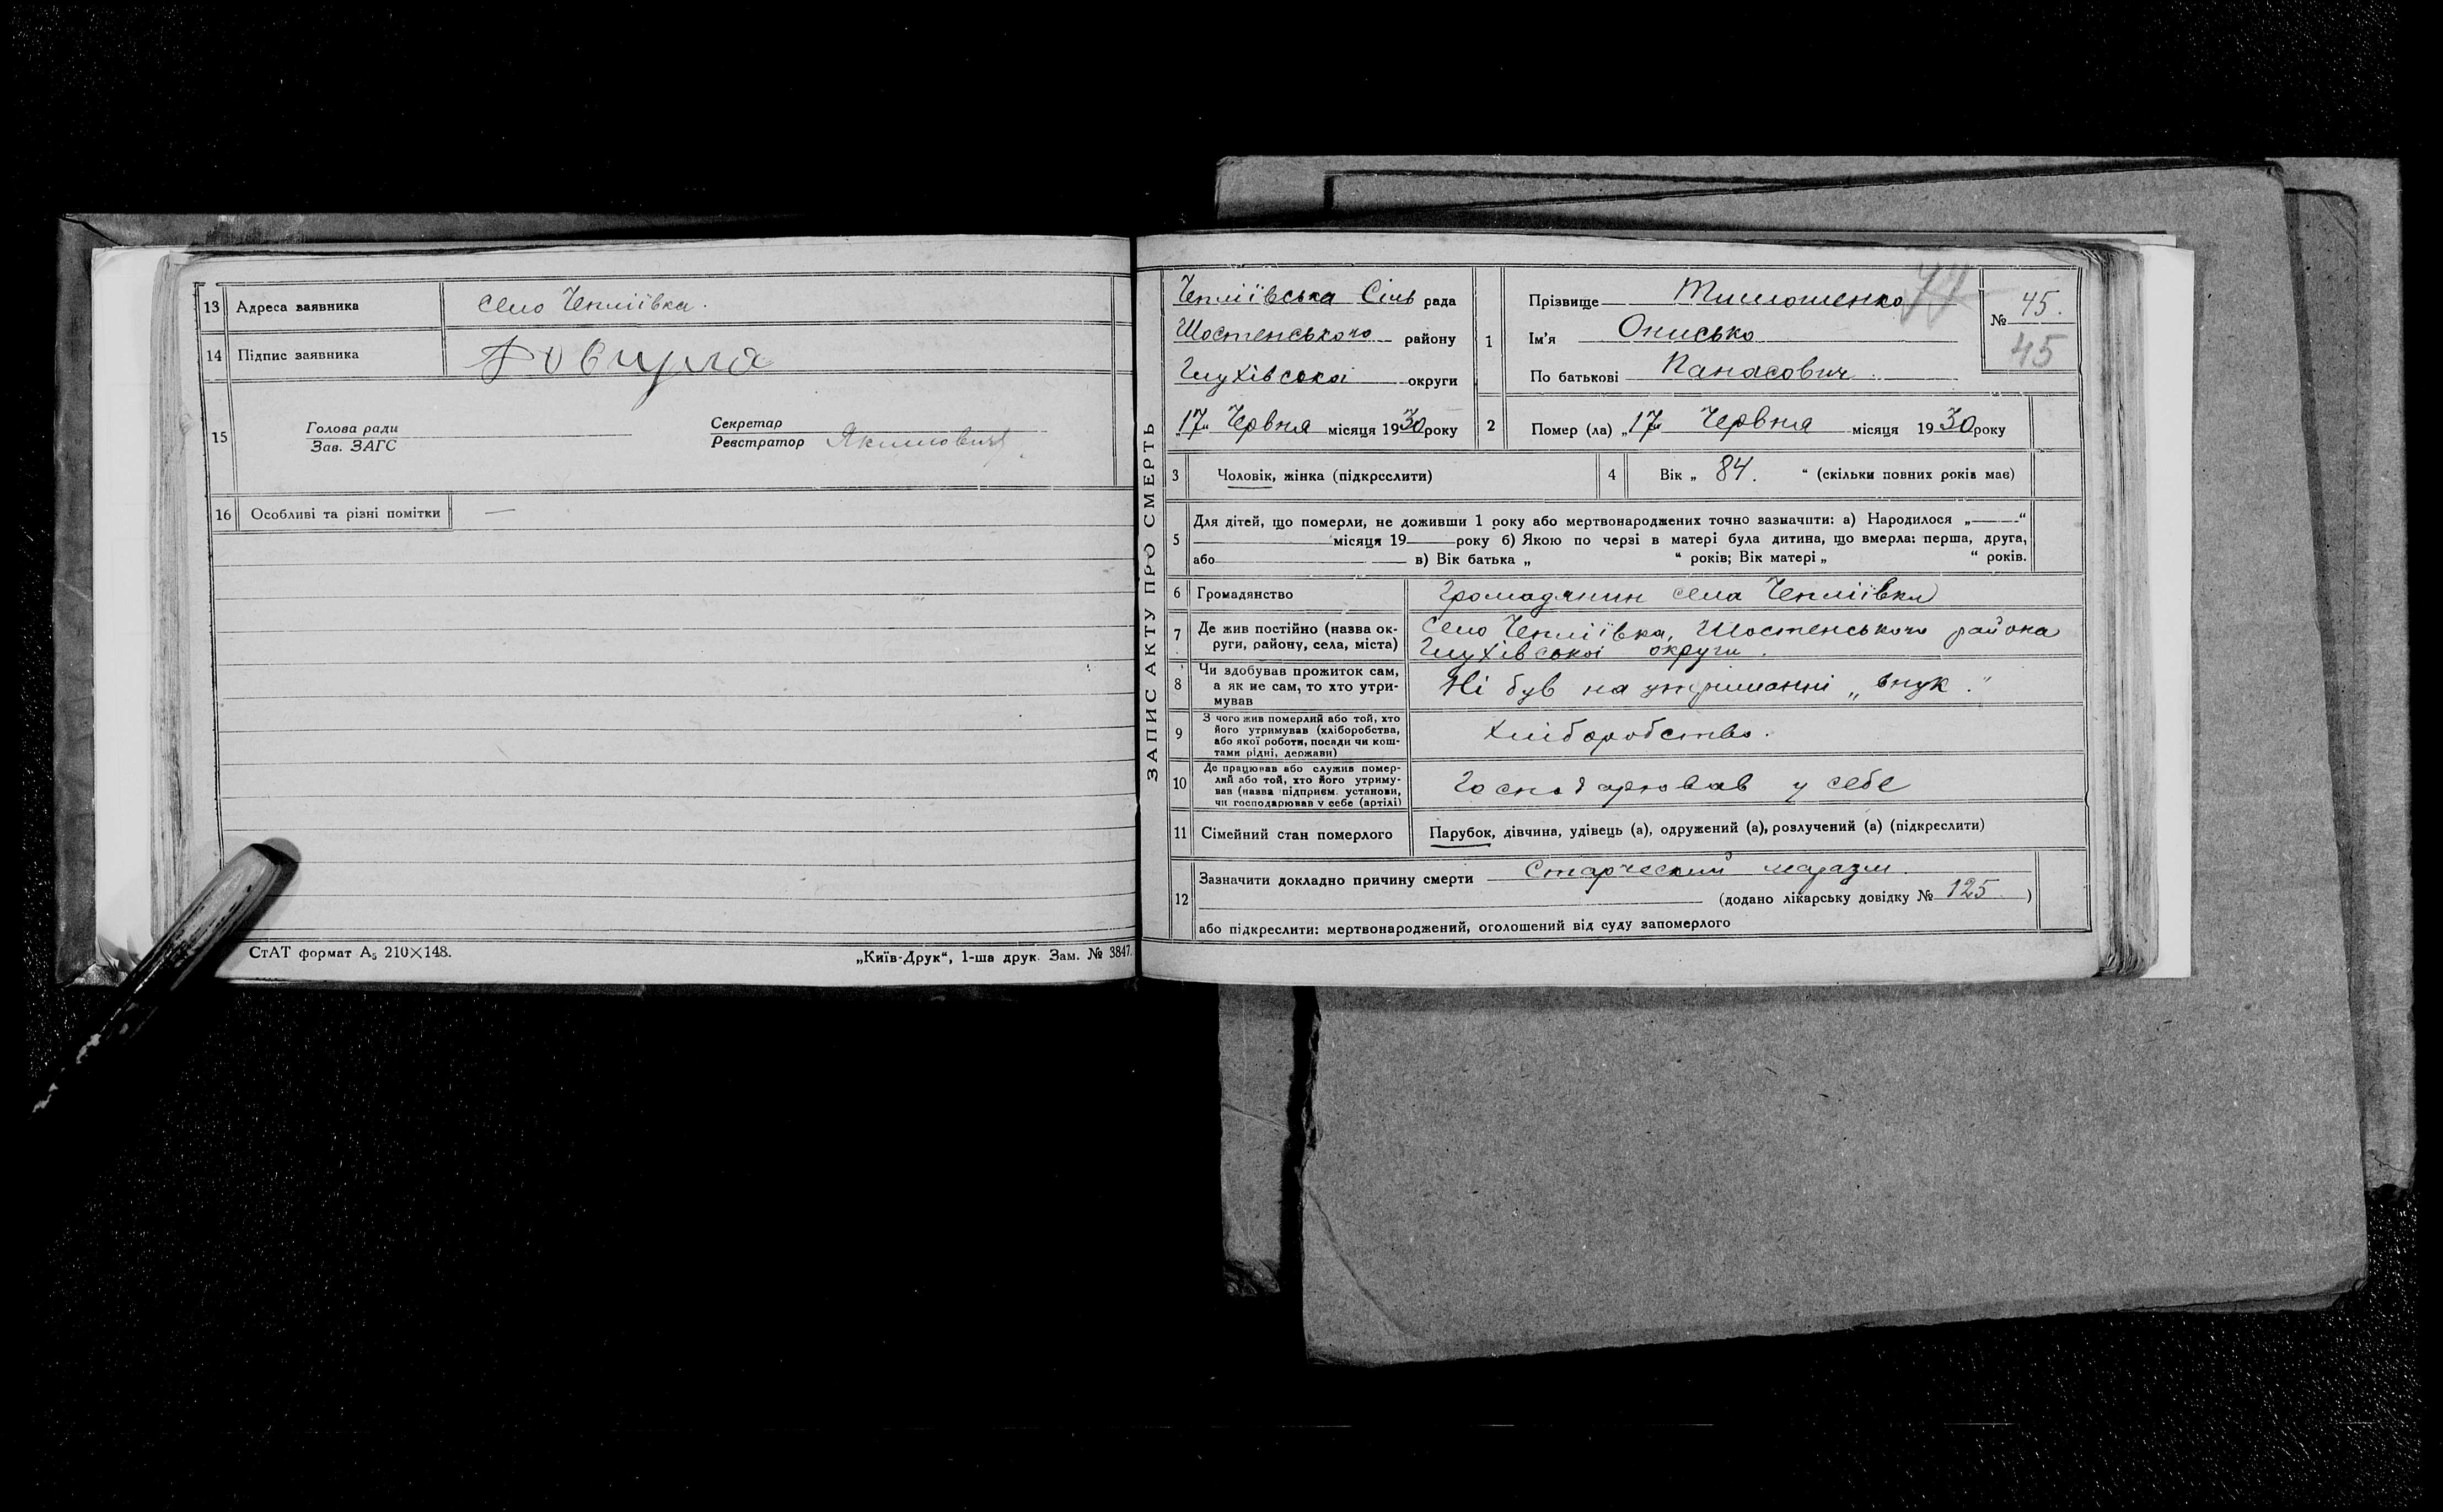 13 Адреса заявника село Чепліївка.
14 Підпис заявника
15 Голова ради
Зав. ЗАГС
Секретар
Реєстратор Якимович
16 Особливі та різні помітки —
СтАТ формат А₅ 210×148.
„Київ-Друк“, 1-ша друк. Зам. № 3847.
ЗАПИС АКТУ ПРО СМЕРТЬ
Чепліївська Сіль рада
Шостенського району
Глухівської округи
„17“ Червня місяця 1930 року
1 Прізвище Тимошенко
Ім'я Онисько
По батькові Панасович
№ 45.
45
2 Помер (ла) „17“ Червня місяця 1930 року
3 Чоловік, жінка (підкреслити)
4 Вік „ 84. “ (скільки повних років має)
5 Для дітей, що померли, не доживши 1 року або мертвонароджених точно зазначити: а) Народилося „ “
місяця 19 року б) Якою по черзі в матері була дитина, що вмерла: перша, друга,
або в) Вік батька „ “ років; Вік матері „ “ років.
6 Громадянство Громадянин села Чепліївки
7 Де жив постійно (назва ок-
руги, району, села, міста)
Село Чепліївка, Шостенського района
Глухівської округи.
8 Чи здобував прожиток сам,
а як не сам, то хто утри-
мував
Ні був на утриманні „внук."
9 З чого жив померлий або той, хто
його утримував (хліборобства,
або якої роботи, посади чи кош-
тами рідні, держави)
Хліборобство.
10 Де працював або служив помер-
лий або той, хто його утриму-
вав (назва підприєм. установи,
чи господарював у себе (артілі)
Господарював у себе
11 Сімейний стан померлого Парубок, дівчина, удівець (а), одружений (а), розлучений (а) (підкреслити)
12 Зазначити докладно причину смерти Старческий маразм.
(додано лікарську довідку № 125 )
або підкреслити: мертвонароджений, оголошений від суду запомерлого